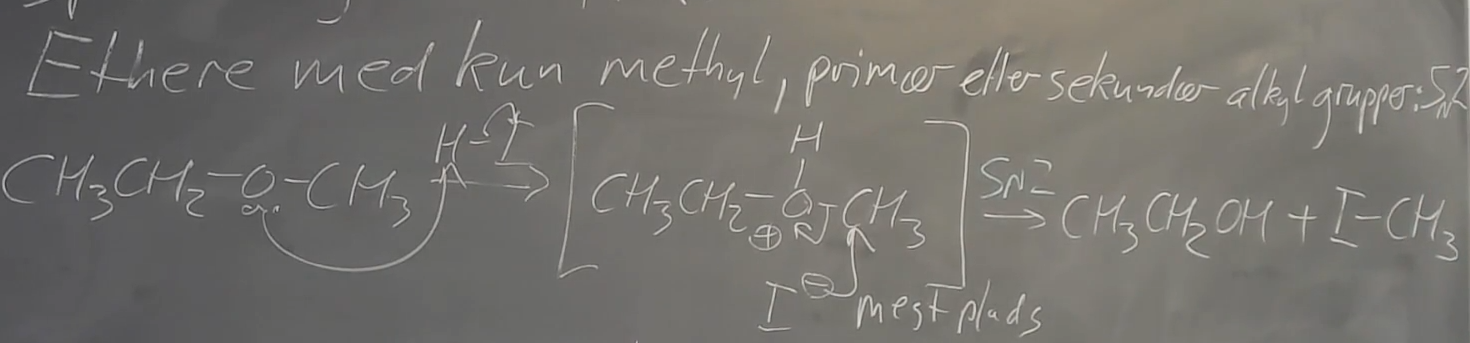 Ethere med kun methyl, primær eller sekundær alkyl grupper: SN2
CH3CH2-O-CH3 H-I → [CH3CH2-O-CH3 H ⊕] SN2 → CH3CH2OH + I-CH3
I ⊖ mest plads